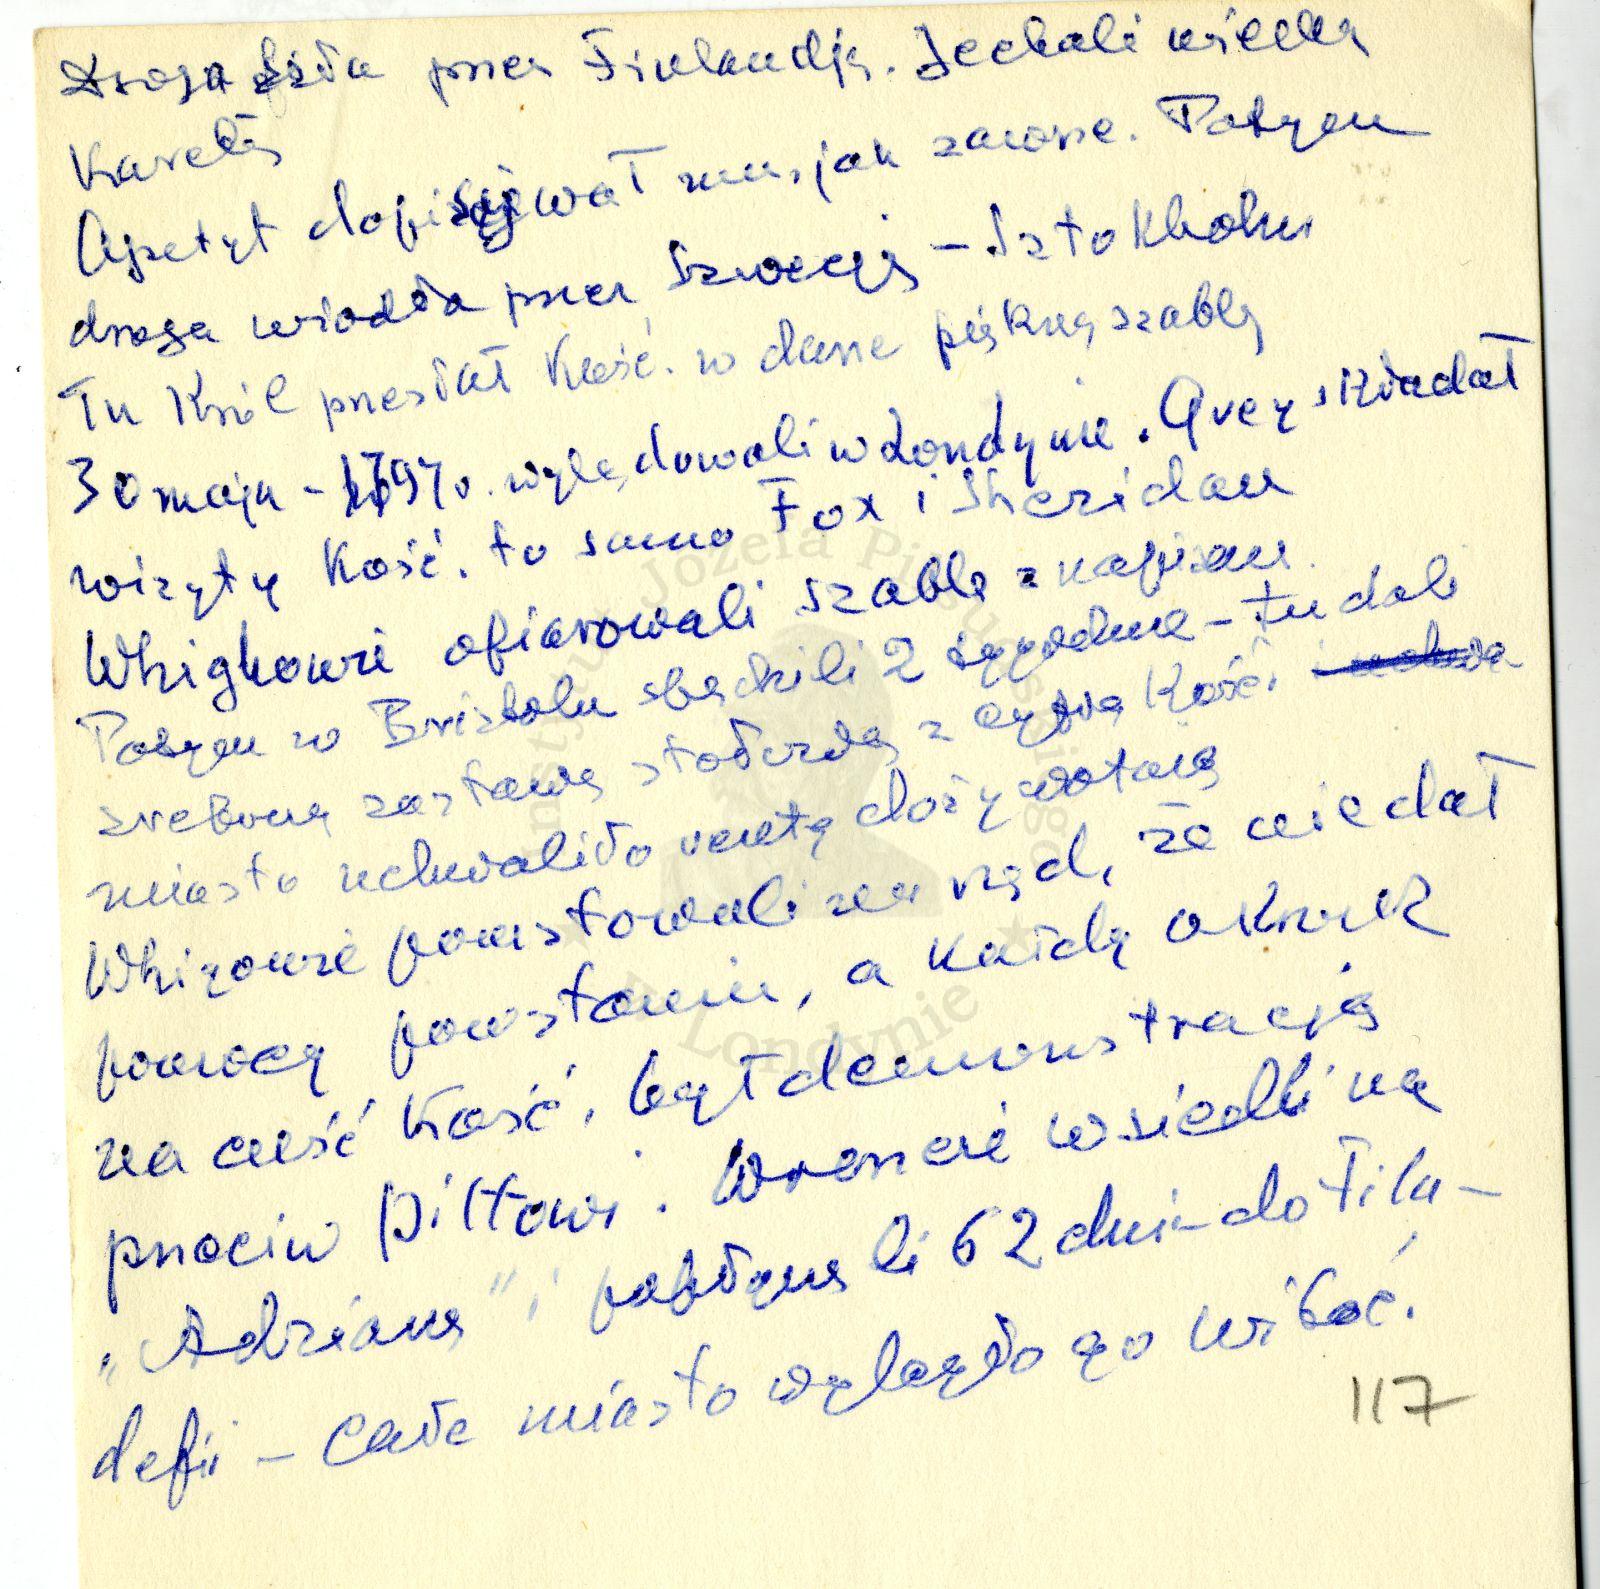 droga szła przez Finlandję. Jechali wielką
Karetą
Apetyt dopisywał mu, jak zawsze. Potym
droga wiodła przez Szwecję – Sztokholm
Tu Król przesłał Kość. w darze piękną szablę
30 maja – 1797 r. wylądowali w Londynie. Grey składał
wizytę Kość. to samo Fox i Sheridan
Whighowie ofiarowali szablę z napisem.
Potym w Bristolu spędzili 2 tygodnie – tu dali
srebrną zastawę stołową z cyfrą Kość.
miasto uchwaliło rentę dożywotnią
Whigowie powstowali na rząd, że nie dał
pomocy powstaniu, a każdy okrzyk
na cześć Kość. był demonstracją
przeciw Pittowi. Wreszcie wsiedli na
„Adrianę” i popłynęli 62 dni – do Fila-
delfii – całe miasto wyległo go witać.
117
Instytut Józefa Piłsudskiego
w Londynie